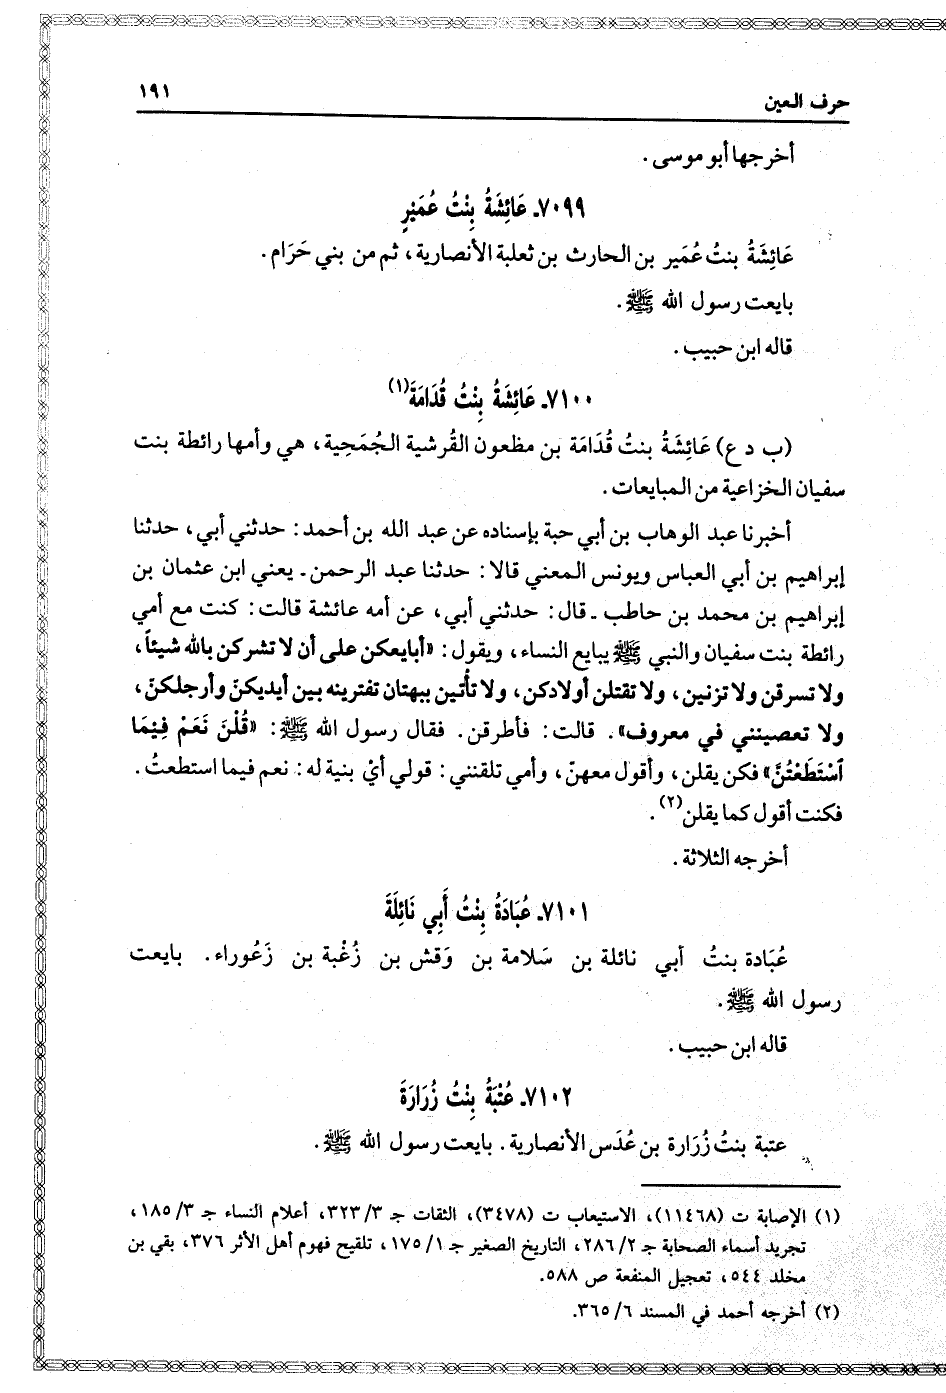 حرف العين ١٩١
أخرجها أبو موسى.
٧٠٩٩ـ عَائِشَةُ بِنْتُ عُمَيْرٍ
عَائِشَةُ بنتُ عُمَير بن الحارث بن ثعلبة الأنصارية، ثم من بني حَرَام.
بايعت رسول الله ﷺ.
قاله ابن حبيب.
٧١٠٠ـ عَائِشَةُ بِنْتُ قُدَامَةَ(١)
(ب د ع) عَائِشَةُ بنتُ قُدَامَة بن مظعون القُرشية الجُمَحِية، هي وأمها رائطة بنت
سفيان الخزاعية من المبايعات.
أخبرنا عبد الوهاب بن أبي حبة بإسناده عن عبد الله بن أحمد: حدثني أبي، حدثنا
إبراهيم بن أبي العباس ويونس المعني قالا: حدثنا عبد الرحمن ـ يعني ابن عثمان بن
إبراهيم بن محمد بن حاطب ـ قال: حدثني أبي، عن أمه عائشة قالت: كنت مع أمي
رائطة بنت سفيان والنبي ﷺ يبايع النساء، ويقول: «أبايعكن على أن لا تشركن بالله شيئاً،
ولا تسرقن ولا تزنين، ولا تقتلن أولادكن، ولا تأْتين ببهتان تفترينه بين أيديكنّ وأرجلكنّ،
ولا تعصينني في معروف». قالت: فأطرقن. فقال رسول الله ﷺ: «قُلْنَ نَعَمْ فِيْمَا
ٱسْتَطَعْتُنَّ» فكن يقلن، وأقول معهنّ، وأمي تلقنني: قولي أيْ بنية له: نعم فيما استطعتُ.
فكنت أقول كما يقلن(٢).
أخرجه الثلاثة.
٧١٠١ـ عُبَادَةُ بِنْتُ أَبِي نَائِلَةَ
عُبَادة بنتُ أبي نائلة بن سَلامة بن وَقش بن زُغْبة بن زَعُوراء. بايعت
رسول الله ﷺ.
قاله ابن حبيب.
٧١٠٢ـ عُتْبَةُ بِنْتُ زُرَارَةَ
عتبة بنتُ زُرَارة بن عُدَس الأنصارية. بايعت رسول الله ﷺ.
(١) الإصابة ت (١١٤٦٨)، الاستيعاب ت (٣٤٧٨)، الثقات جـ ٣/ ٣٢٣، أعلام النساء جـ ٣/ ١٨٥،
تجريد أسماء الصحابة جـ ٢/ ٢٨٦، التاريخ الصغير جـ ١/ ١٧٥، تلقيح فهوم أهل الأثر ٣٧٦، بقي بن
مخلد ٥٤٤، تعجيل المنفعة ص ٥٨٨.
(٢) أخرجه أحمد في المسند ٦/ ٣٦٥.